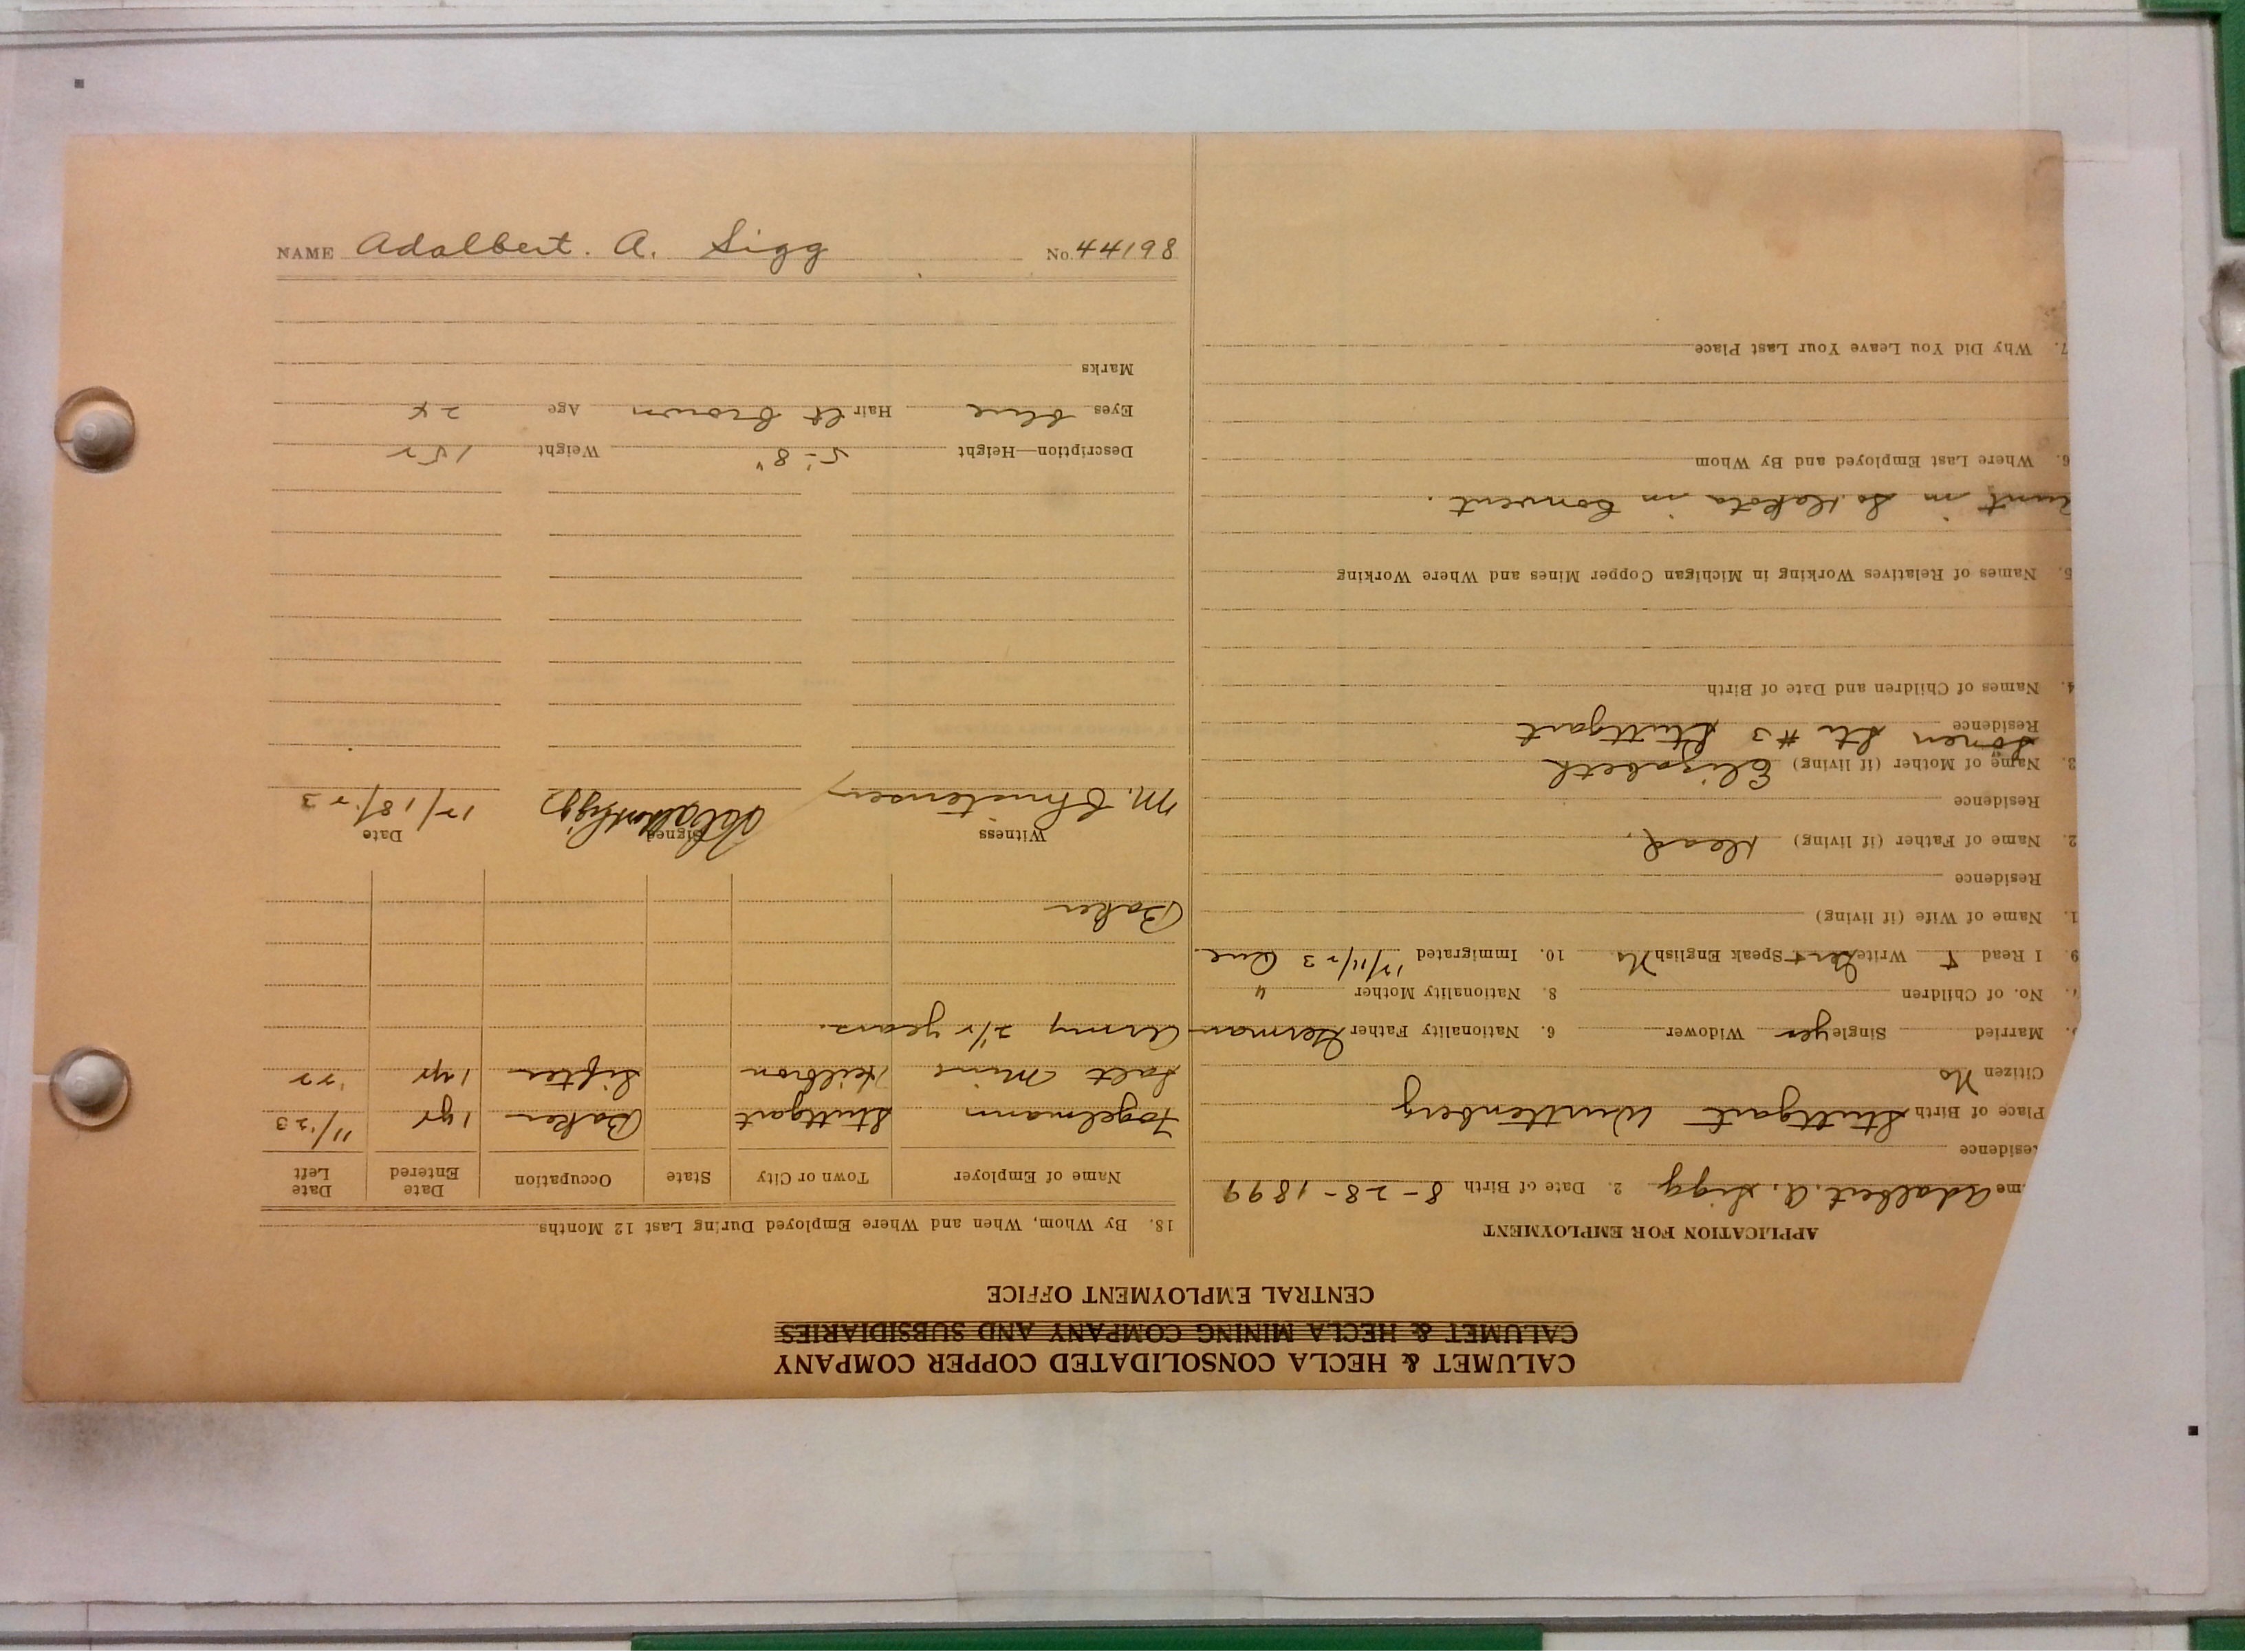 NAME Adalbert. A. Sigg No. 44198
CALUMET & HECLA CONSOLIDATED COPPER COMPANY
CALUMET & HECLA MINING COMPANY AND SUBSIDIARIES
CENTRAL EMPLOYMENT OFFICE
APPLICATION FOR EMPLOYMENT
me Adalbert. A. Sigg 2. Date of Birth 8-28-1899
esidence
Place of Birth Stuttgart Wurttenberg
Citizen No
Married Single yes Widower 6. Nationality Father German
No. of Children 8. Nationality Mother "
9. I Read + Write Ger + Speak English No. 10. Immigrated 12/11/23
1. Name of Wife (if living)
Residence
2. Name of Father (if living) Dead,
Residence
3. Name of Mother (if living) Elizabeth
Residence Str #3 Stuttgart
4. Names of Children and Date of Birth
5. Names of Relatives Working in Michigan Copper Mines and Where Working
Aunt in So. Dakota in Convent.
6. Where Last Employed and By Whom
7. Why Did You Leave Your Last Place
18. By Whom, When and Where Employed During Last 12 Months
Name of Employer Town or City State Occupation Date Entered Date Left
Fogelmann Stuttgart Baker 1 yr 11/23
Salt Mine Heilbron Sifter 1 yr '22
Army 2 1/2 years.
Baker
Witness Signed Date
M. Christensen Adalbert Sigg 12/18/23
Description—Height 5'-8" Weight 152
Eyes blue Hair lt brown Age 24
Marks